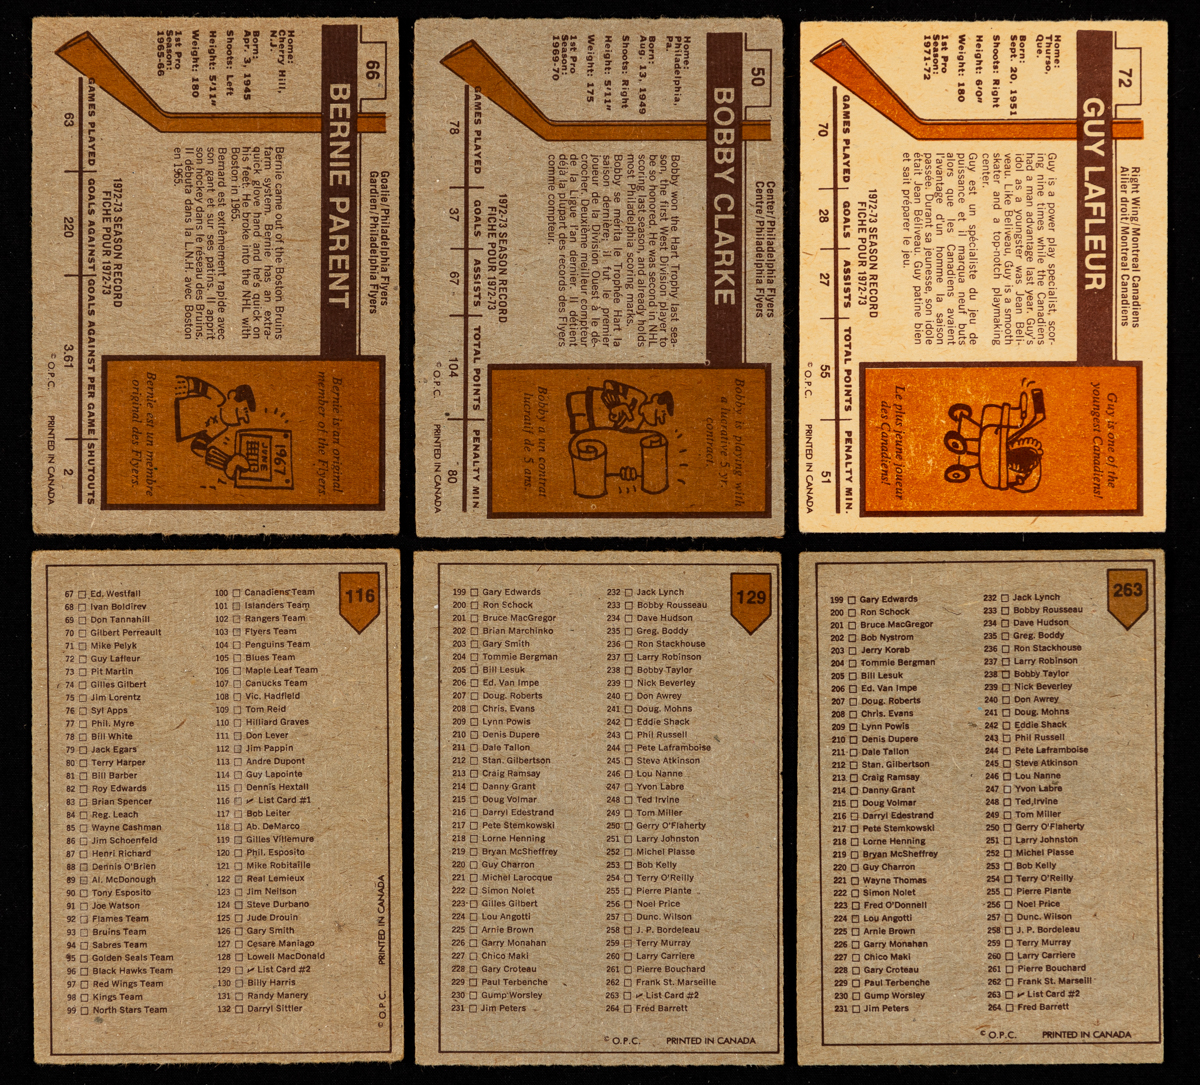 66
BERNIE PARENT
Goalie/Philadelphia Flyers
Gardien/Philadelphia Flyers
Home:
Cherry Hill,
N.J.
Born:
Apr. 3, 1945
Shoots: Left
Height: 5'11"
Weight: 180
1st Pro
Season:
1965-66
Bernie came out of the Boston Bruins
farm system. Bernie has an extra-
quick glove hand and he's quick on
his feet. He broke into the NHL with
Boston in 1965.
Bernard est extrêmement rapide avec
son gant et sur ses patins. Il apprit
son hockey dans le réseau des Bruins.
Il débuta dans la L.N.H. avec Boston
en 1965.
1972-73 SEASON RECORD
FICHE POUR 1972-73
GAMES PLAYED GOALS AGAINST GOALS AGAINST PER GAME SHUTOUTS
63 220 3.61 2
© O.P.C. PRINTED IN CANADA
Bernie is an original
member of the Flyers.
1967
JUNE
Bernie est un membre
original des Flyers.
50
BOBBY CLARKE
Center/Philadelphia Flyers
Centre/Philadelphia Flyers
Home:
Philadelphia,
Pa.
Born:
Aug. 13, 1949
Shoots: Right
Height: 5'11"
Weight: 175
1st Pro
Season:
1969-70
Bobby won the Hart Trophy last sea-
son, the first West Division player to
be so honored. He was second in NHL
scoring last season, and already holds
most Philadelphia scoring marks.
Bobby se mérita le Trophée Hart la
saison dernière; il fut le premier
joueur de la Division Ouest à le dé-
crocher. Deuxième meilleur compteur
de la Ligue l'an dernier. Il détient
déjà la plupart des records des Flyers
comme compteur.
1972-73 SEASON RECORD
FICHE POUR 1972-73
GAMES PLAYED GOALS ASSISTS TOTAL POINTS PENALTY MIN.
78 37 67 104 80
© O.P.C. PRINTED IN CANADA
Bobby is playing with
a lucrative 5 yr.
contract.
Bobby a un contrat
lucratif de 5 ans
72
GUY LAFLEUR
Right Wing/Montreal Canadiens
Ailier droit/Montreal Canadiens
Home:
Thurso,
Que.
Born:
Sept. 20, 1951
Shoots: Right
Height: 6'0"
Weight: 180
1st Pro
Season:
1971-72
Guy is a power play specialist, scor-
ing nine times while the Canadiens
had a man advantage last year. Guy's
idol as a youngster was Jean Beli-
veau. Like Beliveau, Guy is a smooth
skater and a top-notch playmaking
center.
Guy est un spécialiste du jeu de
puissance et il marqua neuf buts
alors que les Canadiens avaient
l'avantage d'un homme la saison
passée. Durant sa jeunesse, son idole
était Jean Béliveau. Guy patine bien
et sait préparer le jeu.
1972-73 SEASON RECORD
FICHE POUR 1972-73
GAMES PLAYED GOALS ASSISTS TOTAL POINTS PENALTY MIN.
70 28 27 55 51
© O.P.C. PRINTED IN CANADA
Guy is one of the
youngest Canadiens!
Le plus jeune joueur
des Canadiens!
116
67 Ed. Westfall
68 Ivan Boldirev
69 Don Tannahill
70 Gilbert Perreault
71 Mike Pelyk
72 Guy Lafleur
73 Pit Martin
74 Gilles Gilbert
75 Jim Lorentz
76 Syl Apps
77 Phil. Myre
78 Bill White
79 Jack Egars
80 Terry Harper
81 Bill Barber
82 Roy Edwards
83 Brian Spencer
84 Reg. Leach
85 Wayne Cashman
86 Jim Schoenfeld
87 Henri Richard
88 Dennis O'Brien
89 Al. McDonough
90 Tony Esposito
91 Joe Watson
92 Flames Team
93 Bruins Team
94 Sabres Team
95 Golden Seals Team
96 Black Hawks Team
97 Red Wings Team
98 Kings Team
99 North Stars Team
100 Canadiens Team
101 Islanders Team
102 Rangers Team
103 Flyers Team
104 Penguins Team
105 Blues Team
106 Maple Leaf Team
107 Canucks Team
108 Vic. Hadfield
109 Tom Reid
110 Hilliard Graves
111 Don Lever
112 Jim Pappin
113 Andre Dupont
114 Guy Lapointe
115 Dennis Hextall
116 List Card #1
117 Bob Leiter
118 Ab. DeMarco
119 Gilles Villemure
120 Phil. Esposito
121 Mike Robitaille
122 Real Lemieux
123 Jim Neilson
124 Steve Durbano
125 Jude Drouin
126 Gary Smith
127 Cesare Maniago
128 Lowell MacDonald
129 List Card #2
130 Billy Harris
131 Randy Manery
132 Darryl Sittler
© O.P.C. PRINTED IN CANADA
129
199 Gary Edwards
200 Ron Schock
201 Bruce MacGregor
202 Brian Marchinko
203 Gary Smith
204 Tommie Bergman
205 Bill Lesuk
206 Ed. Van Impe
207 Doug. Roberts
208 Chris. Evans
209 Lynn Powis
210 Denis Dupere
211 Dale Tallon
212 Stan. Gilbertson
213 Craig Ramsay
214 Danny Grant
215 Doug Volmar
216 Darryl Edestrand
217 Pete Stemkowski
218 Lorne Henning
219 Bryan McSheffrey
220 Guy Charron
221 Michel Larocque
222 Simon Nolet
223 Gilles Gilbert
224 Lou Angotti
225 Arnie Brown
226 Garry Monahan
227 Chico Maki
228 Gary Croteau
229 Paul Terbenche
230 Gump Worsley
231 Jim Peters
232 Jack Lynch
233 Bobby Rousseau
234 Dave Hudson
235 Greg. Boddy
236 Ron Stackhouse
237 Larry Robinson
238 Bobby Taylor
239 Nick Beverley
240 Don Awrey
241 Doug. Mohns
242 Eddie Shack
243 Phil Russell
244 Pete Laframboise
245 Steve Atkinson
246 Lou Nanne
247 Yvon Labre
248 Ted Irvine
249 Tom Miller
250 Gerry O'Flaherty
251 Larry Johnston
252 Michel Plasse
253 Bob Kelly
254 Terry O'Reilly
255 Pierre Plante
256 Noel Price
257 Dunc. Wilson
258 J. P. Bordeleau
259 Terry Murray
260 Larry Carriere
261 Pierre Bouchard
262 Frank St. Marseille
263 List Card #2
264 Fred Barrett
© O.P.C. PRINTED IN CANADA
263
199 Gary Edwards
200 Ron Schock
201 Bruce MacGregor
202 Bob Nystrom
203 Jerry Korab
204 Tommie Bergman
205 Bill Lesuk
206 Ed. Van Impe
207 Doug. Roberts
208 Chris. Evans
209 Lynn Powis
210 Denis Dupere
211 Dale Tallon
212 Stan. Gilbertson
213 Craig Ramsay
214 Danny Grant
215 Doug Volmar
216 Darryl Edestrand
217 Pete Stemkowski
218 Lorne Henning
219 Bryan McSheffrey
220 Guy Charron
221 Wayne Thomas
222 Simon Nolet
223 Fred O'Donnell
224 Lou Angotti
225 Arnie Brown
226 Garry Monahan
227 Chico Maki
228 Gary Croteau
229 Paul Terbenche
230 Gump Worsley
231 Jim Peters
232 Jack Lynch
233 Bobby Rousseau
234 Dave Hudson
235 Greg. Boddy
236 Ron Stackhouse
237 Larry Robinson
238 Bobby Taylor
239 Nick Beverley
240 Don Awrey
241 Doug. Mohns
242 Eddie Shack
243 Phil Russell
244 Pete Laframboise
245 Steve Atkinson
246 Lou Nanne
247 Yvon Labre
248 Ted Irvine
249 Tom Miller
250 Gerry O'Flaherty
251 Larry Johnston
252 Michel Plasse
253 Bob Kelly
254 Terry O'Reilly
255 Pierre Plante
256 Noel Price
257 Dunc. Wilson
258 J. P. Bordeleau
259 Terry Murray
260 Larry Carriere
261 Pierre Bouchard
262 Frank St. Marseill
263 List Card #2
264 Fred Barrett
© O.P.C. PRINTED IN CANADA